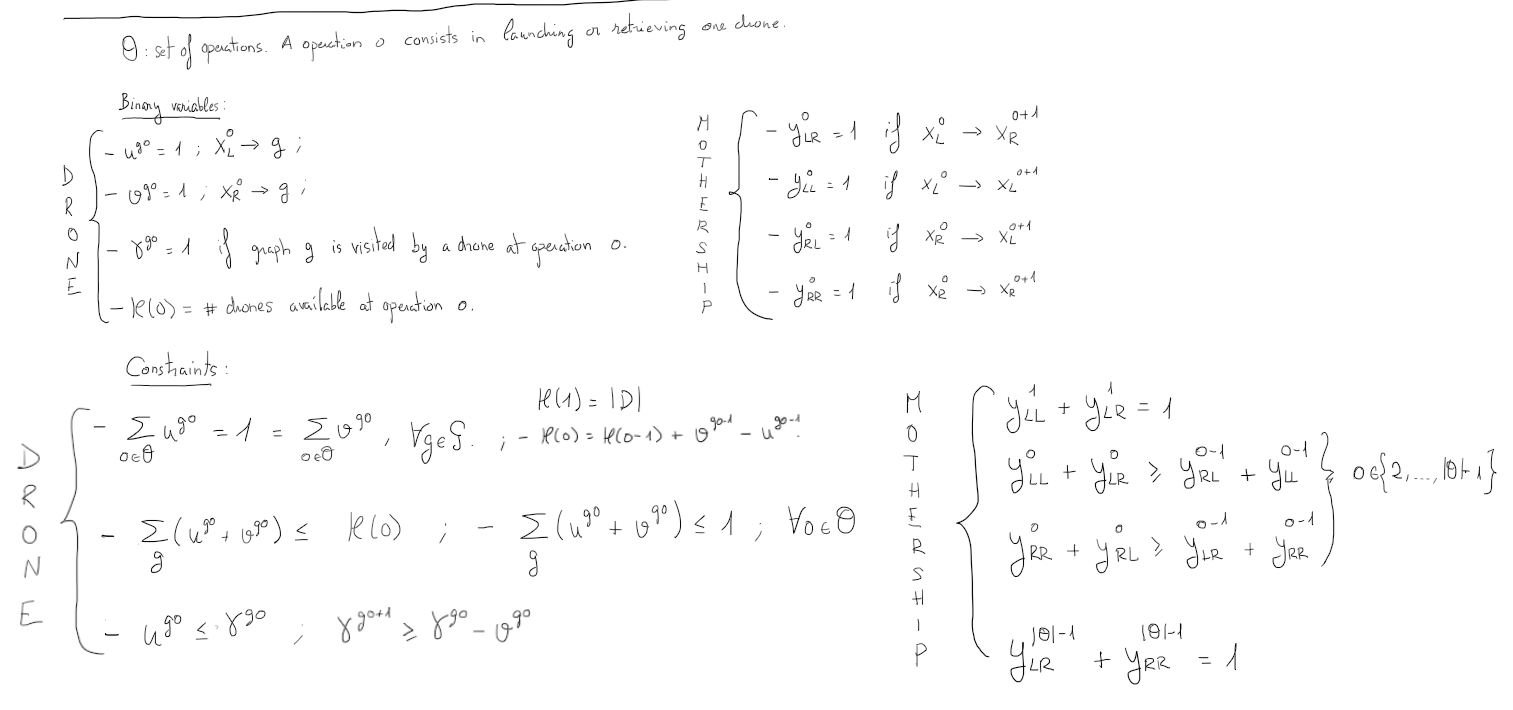 Θ: set of operations. A operation o consists in launching or retrieving one drone.
Binary variables:
DRONE
- u^{go} = 1 ; x_L^o → g ;
- v^{go} = 1 ; x_R^o → g ;
- γ^{go} = 1 if graph g is visited by a drone at operation o.
- K(o) = # drones available at operation o.
MOTHERSHIP
- y_{LR}^o = 1 if x_L^o → x_R^{o+1}
- y_{LL}^o = 1 if x_L^o → x_L^{o+1}
- y_{RL}^o = 1 if x_R^o → x_L^{o+1}
- y_{RR}^o = 1 if x_R^o → x_R^{o+1}
Constraints:
DRONE
K(1) = |D|
- Σ_{o∈Θ} u^{go} = 1 = Σ_{o∈Θ} v^{go}, ∀g∈G. ; - K(o) = K(o-1) + v^{go-1} - u^{go-1}.
- Σ_g (u^{go} + v^{go}) ≤ K(o) ; - Σ_g (u^{go} + v^{go}) ≤ 1 ; ∀o∈Θ
- u^{go} ≤ γ^{go} ; γ^{go+1} ≥ γ^{go} - v^{go}
MOTHERSHIP
y_{LL}^1 + y_{LR}^1 = 1
y_{LL}^o + y_{LR}^o ≥ y_{RL}^{o-1} + y_{LL}^{o-1} } o∈{2,...,|Θ|-1}
y_{RR}^o + y_{RL}^o ≥ y_{LR}^{o-1} + y_{RR}^{o-1}
y_{LR}^{|Θ|-1} + y_{RR}^{|Θ|-1} = 1